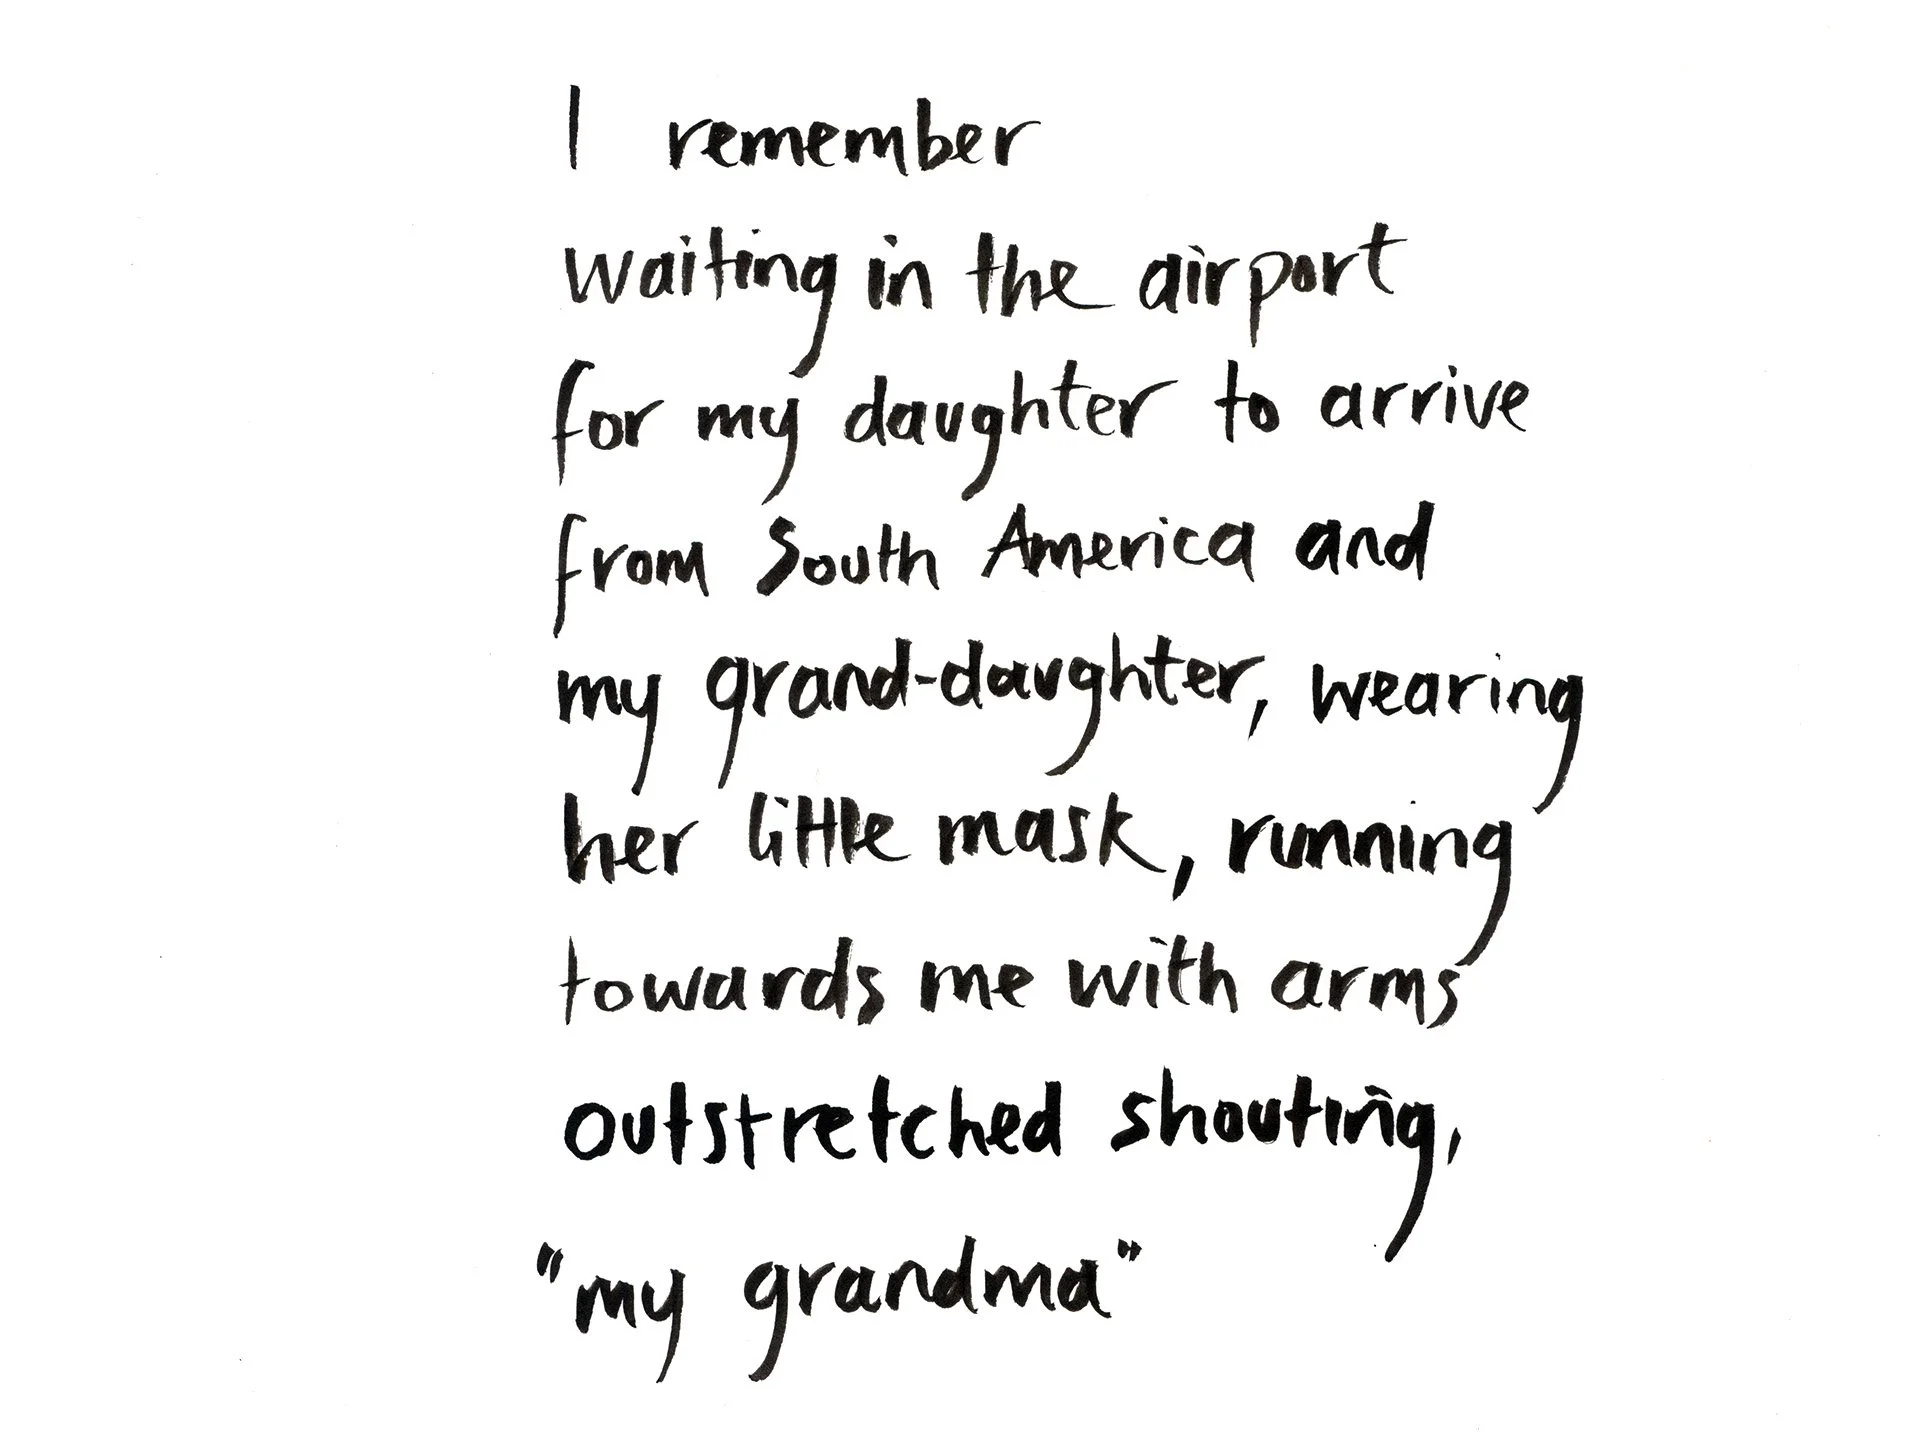 I remember
waiting in the airport
for my daughter to arrive
from South America and
my grand-daughter, wearing
her little mask, running
towards me with arms
outstretched shouting,
"my grandma"